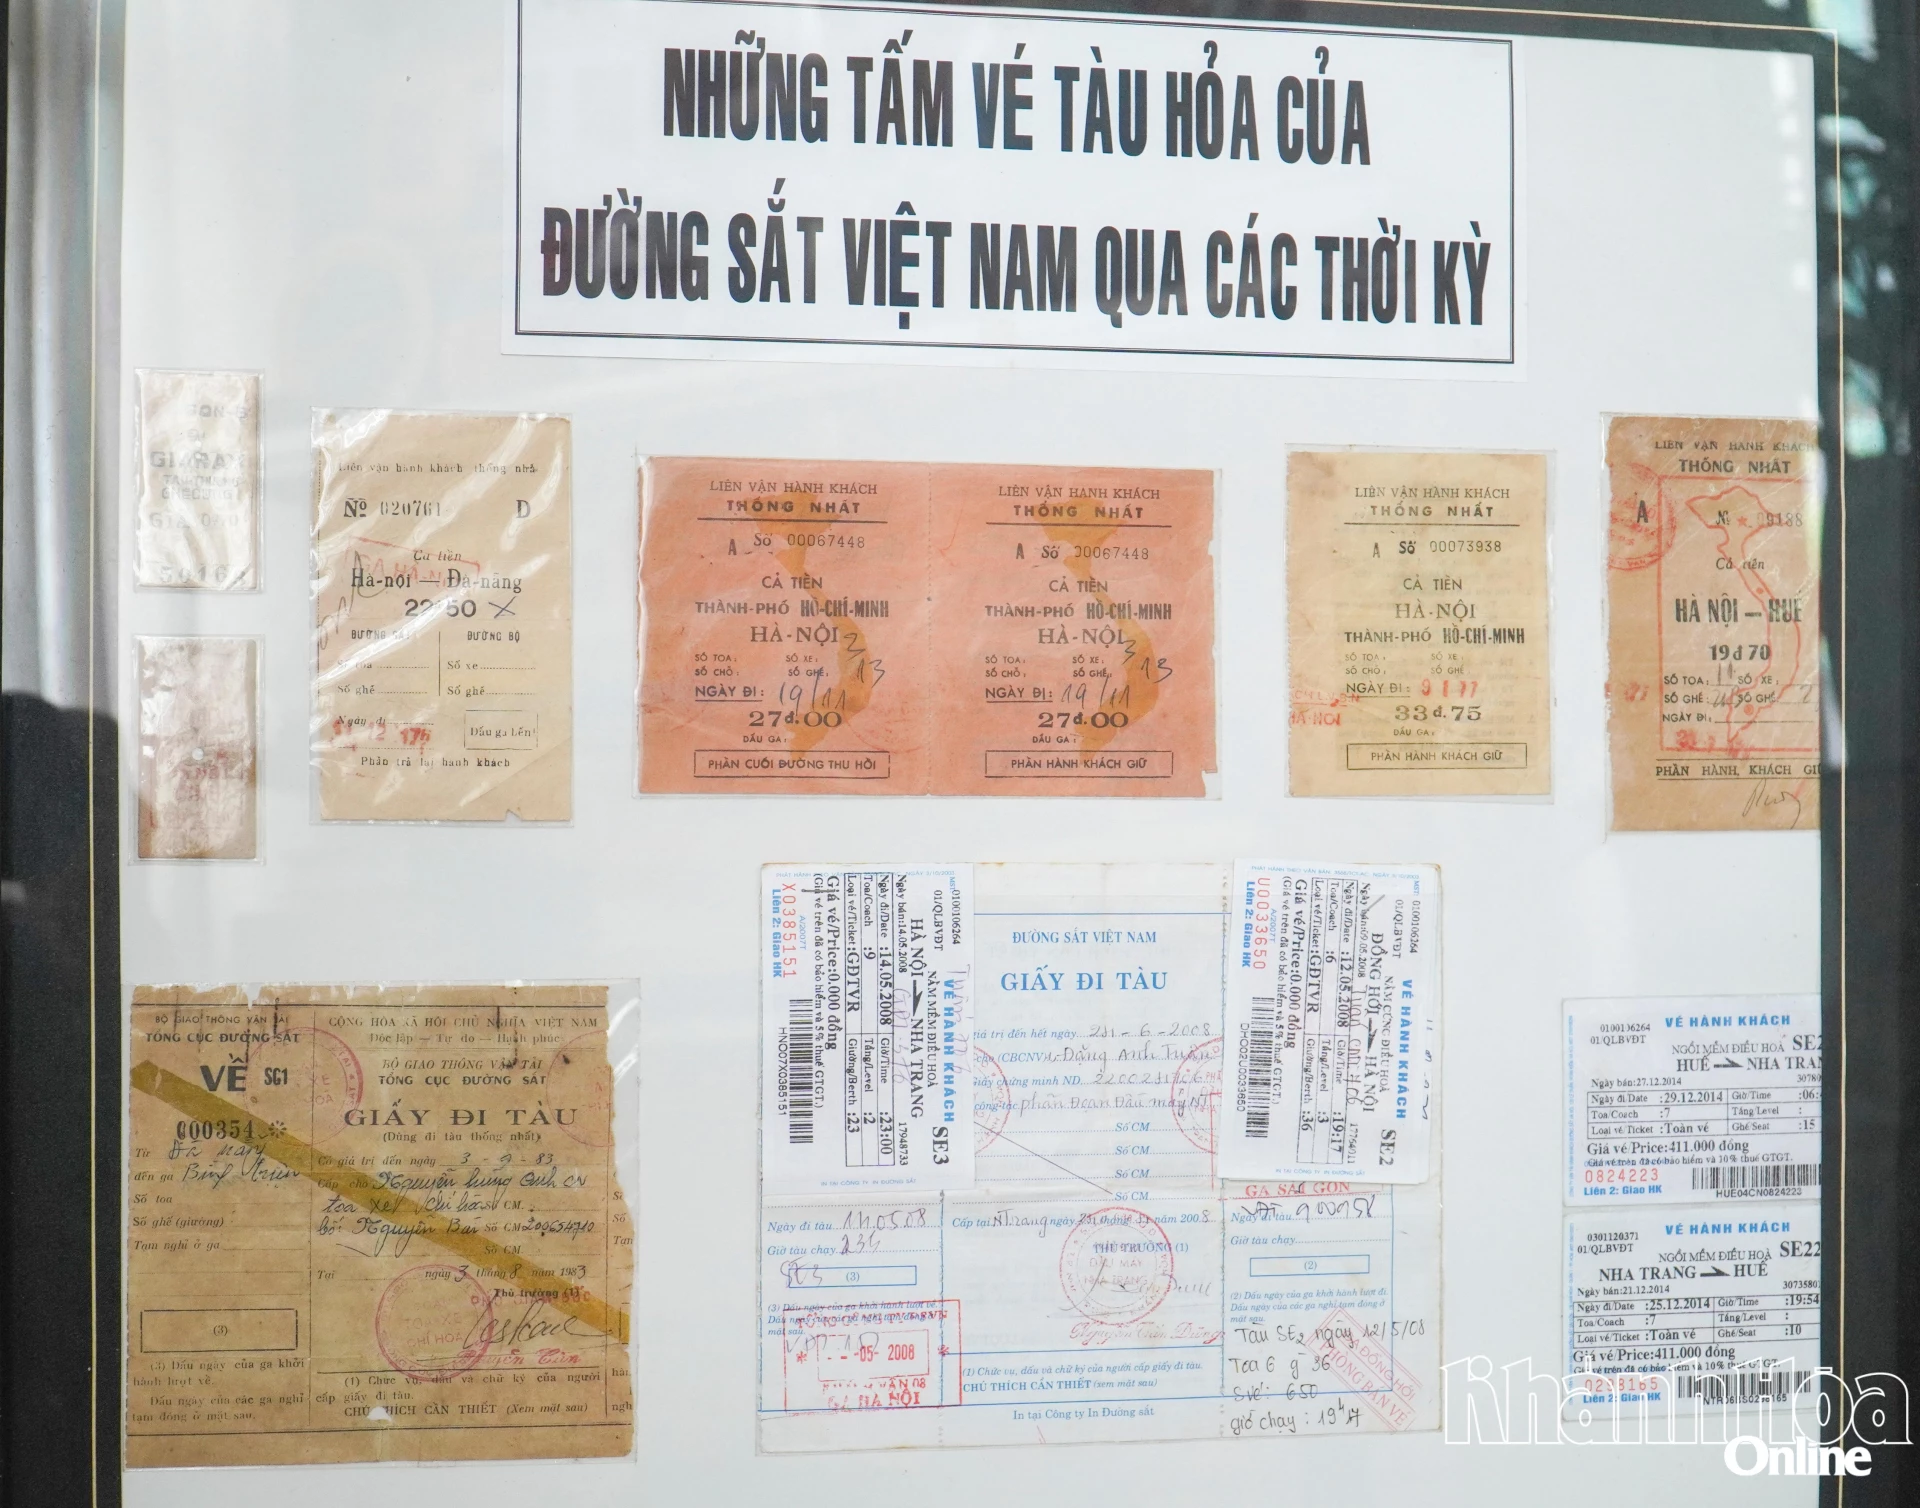 NHỮNG TẤM VÉ TÀU HỎA CỦA
ĐƯỜNG SẮT VIỆT NAM QUA CÁC THỜI KỲ
Liên vận hành khách thống nhấ
Nº 020761 D
Cả tiền
Hà-nội — Đà-nẵng
22 50
ĐƯỜNG SẮT ĐƯỜNG BỘ
Số toa Số xe
Số ghế Số ghế
Ngày đi
Dấu ga đến
Phần trả lại hành khách
LIÊN VẬN HÀNH KHÁCH
THỐNG NHẤT
A Số 00067448
CẢ TIỀN
THÀNH-PHỐ HỒ-CHÍ-MINH
HÀ-NỘI
SỐ TOA: SỐ XE:
SỐ CHỖ: SỐ GHẾ:
NGÀY ĐI: 19/11
27đ.00
DẤU GA:
PHẦN CUỐI ĐƯỜNG THU HỒI
LIÊN VẬN HÀNH KHÁCH
THỐNG NHẤT
A Số 00067448
CẢ TIỀN
THÀNH-PHỐ HỒ-CHÍ-MINH
HÀ-NỘI
SỐ TOA: SỐ XE:
SỐ CHỖ: SỐ GHẾ:
NGÀY ĐI: 19/11
27đ.00
DẤU GA:
PHẦN HÀNH KHÁCH GIỮ
LIÊN VẬN HÀNH KHÁCH
THỐNG NHẤT
A Số 00073938
CẢ TIỀN
HÀ-NỘI
THÀNH-PHỐ HỒ-CHÍ-MINH
SỐ TOA: SỐ XE:
SỐ CHỖ: SỐ GHẾ
NGÀY ĐI: 9 1 77
33đ.75
DẤU GA:
PHẦN HÀNH KHÁCH GIỮ
LIÊN VẬN HÀNH KHÁCH
THỐNG NHẤT
A Nº 09188
Cả tiền
HÀ NỘI — HUẾ
19đ70
SỐ TOA: SỐ XE:
SỐ GHẾ: SỐ GHẾ
NGÀY ĐI:
PHẦN HÀNH KHÁCH GIỮ
BỘ GIAO THÔNG VẬN TẢI
TỔNG CỤC ĐƯỜNG SẮT
VỀ SG1
000354
Từ Đà nẵng
đến ga
Số toa
Số ghế (giường)
Tạm nghỉ ở ga
(3)
(3) Dấu ngày của ga khởi
hành lượt về.
Dấu ngày của các ga nghỉ
tạm đóng ở mặt sau.
CỘNG HÒA XÃ HỘI CHỦ NGHĨA VIỆT NAM
Độc lập — Tự do — Hạnh phúc
BỘ GIAO THÔNG VẬN TẢI
TỔNG CỤC ĐƯỜNG SẮT
GIẤY ĐI TÀU
(Dùng đi tàu thống nhất)
Có giá trị đến ngày 3-9-83
Cấp cho Nguyễn hùng Anh
Số CM
Số CM 200654710
Số CM
Tại ngày 3 tháng 8 năm 1983
Thủ trưởng (1)
(1) Chức vụ, dấu và chữ ký của người
cấp giấy đi tàu.
CHÚ THÍCH CẦN THIẾT (Xem mặt sau)
MST: 0100106264
01/QLBVĐT
VÉ HÀNH KHÁCH
NẰM MỀM ĐIỀU HOÀ SE3
HÀ NỘI NHA TRANG
Ngày bán:14.05.2008 17948733
Ngày đi/Date :14.05.2008 Giờ/Time :23:00
Toa/Coach :9 Tầng/Level :2
Loại vé/Ticket :GĐTVR Giường/Berth :23
Giá vé/Price:0.000 đồng
(Giá vé trên đã có bảo hiểm và 5% thuế GTGT.)
A/2007T
X0385151
Liên 2: Giao HK
HNO07X0385151
IN TẠI CÔNG TY IN ĐƯỜNG SẮT
ĐƯỜNG SẮT VIỆT NAM
GIẤY ĐI TÀU
iá trị đến hết ngày 21-6-2008
cho (CBCNV) Đặng Anh Tuấn
Giấy chứng minh ND
công tác phân Đoạn Đầu máy NT
Số CM
Số CM
Số CM
Số CM
Cấp tại N Trang ngày tháng năm 2008
THỦ TRƯỞNG (1)
Ngày đi tàu 14.05.08
Giờ tàu chạy 23h
SE3 (3)
(3) Dấu ngày của ga khởi hành lượt về.
-05- 2008
GA HÀ NỘI
(1) Chức vụ, dấu và chữ ký của người cấp giấy đi tàu.
CHÚ THÍCH CẦN THIẾT (xem mặt sau)
In tại Công ty In Đường sắt
MST: 0100106264
01/QLBVĐT
VÉ HÀNH KHÁCH
NẰM CỨNG ĐIỀU HOÀ SE2
ĐỒNG HỚI HÀ NỘI
Ngày bán:09.05.2008 17764911
Ngày đi/Date :12.05.2008 Giờ/Time :19:17
Toa/Coach :6 Tầng/Level :3
Loại vé/Ticket :GĐTVR Giường/Berth :36
Giá vé/Price:0.000 đồng
(Giá vé trên đã có bảo hiểm và 5% thuế GTGT.)
A/2007T
U0033650
Liên 2: Giao HK
DHO02U0033650
IN TẠI CÔNG TY IN ĐƯỜNG SẮT
GA SÀI GÒN
Ngày đi tàu
Giờ tàu chạy
(2)
(2) Dấu ngày của ga khởi hành lượt đi.
Dấu ngày của các ga nghỉ tạm đóng ở
mặt sau.
Tàu SE2 ngày 12/5/08
Toa 6 g 36
Své: 650
giờ chạy: 19h17
GA ĐỒNG HỚI
PHÒNG BÁN VÉ
0100106264
01/QLBVĐT
VÉ HÀNH KHÁCH
NGỒI MỀM ĐIỀU HOÀ SE2
HUẾ NHA TRAN
Ngày bán:27.12.2014 30780
Ngày đi/Date :29.12.2014 Giờ/Time :06:
Toa/Coach :7 Tầng/Level :
Loại vé/Ticket :Toàn vé Ghế/Seat :15
Giá vé/Price:411.000 đồng
Giá vé trên đã có bảo hiểm và 10% thuế GTGT.
0824223
Liên 2: Giao HK HUE04CN0824223
VÉ HÀNH KHÁCH
0301120371
01/QLBVĐT
NGỒI MỀM ĐIỀU HOÀ SE22
NHA TRANG HUẾ
Ngày bán:21.12.2014 3073580
Ngày đi/Date :25.12.2014 Giờ/Time :19:54
Toa/Coach :7 Tầng/Level :
Loại vé/Ticket :Toàn vé Ghế/Seat :10
Giá vé/Price:411.000 đồng
Giá vé trên đã có bảo hiểm và 10% thuế GTGT.
0298165
Liên 2: Giao HK
Khánh Hòa
Online